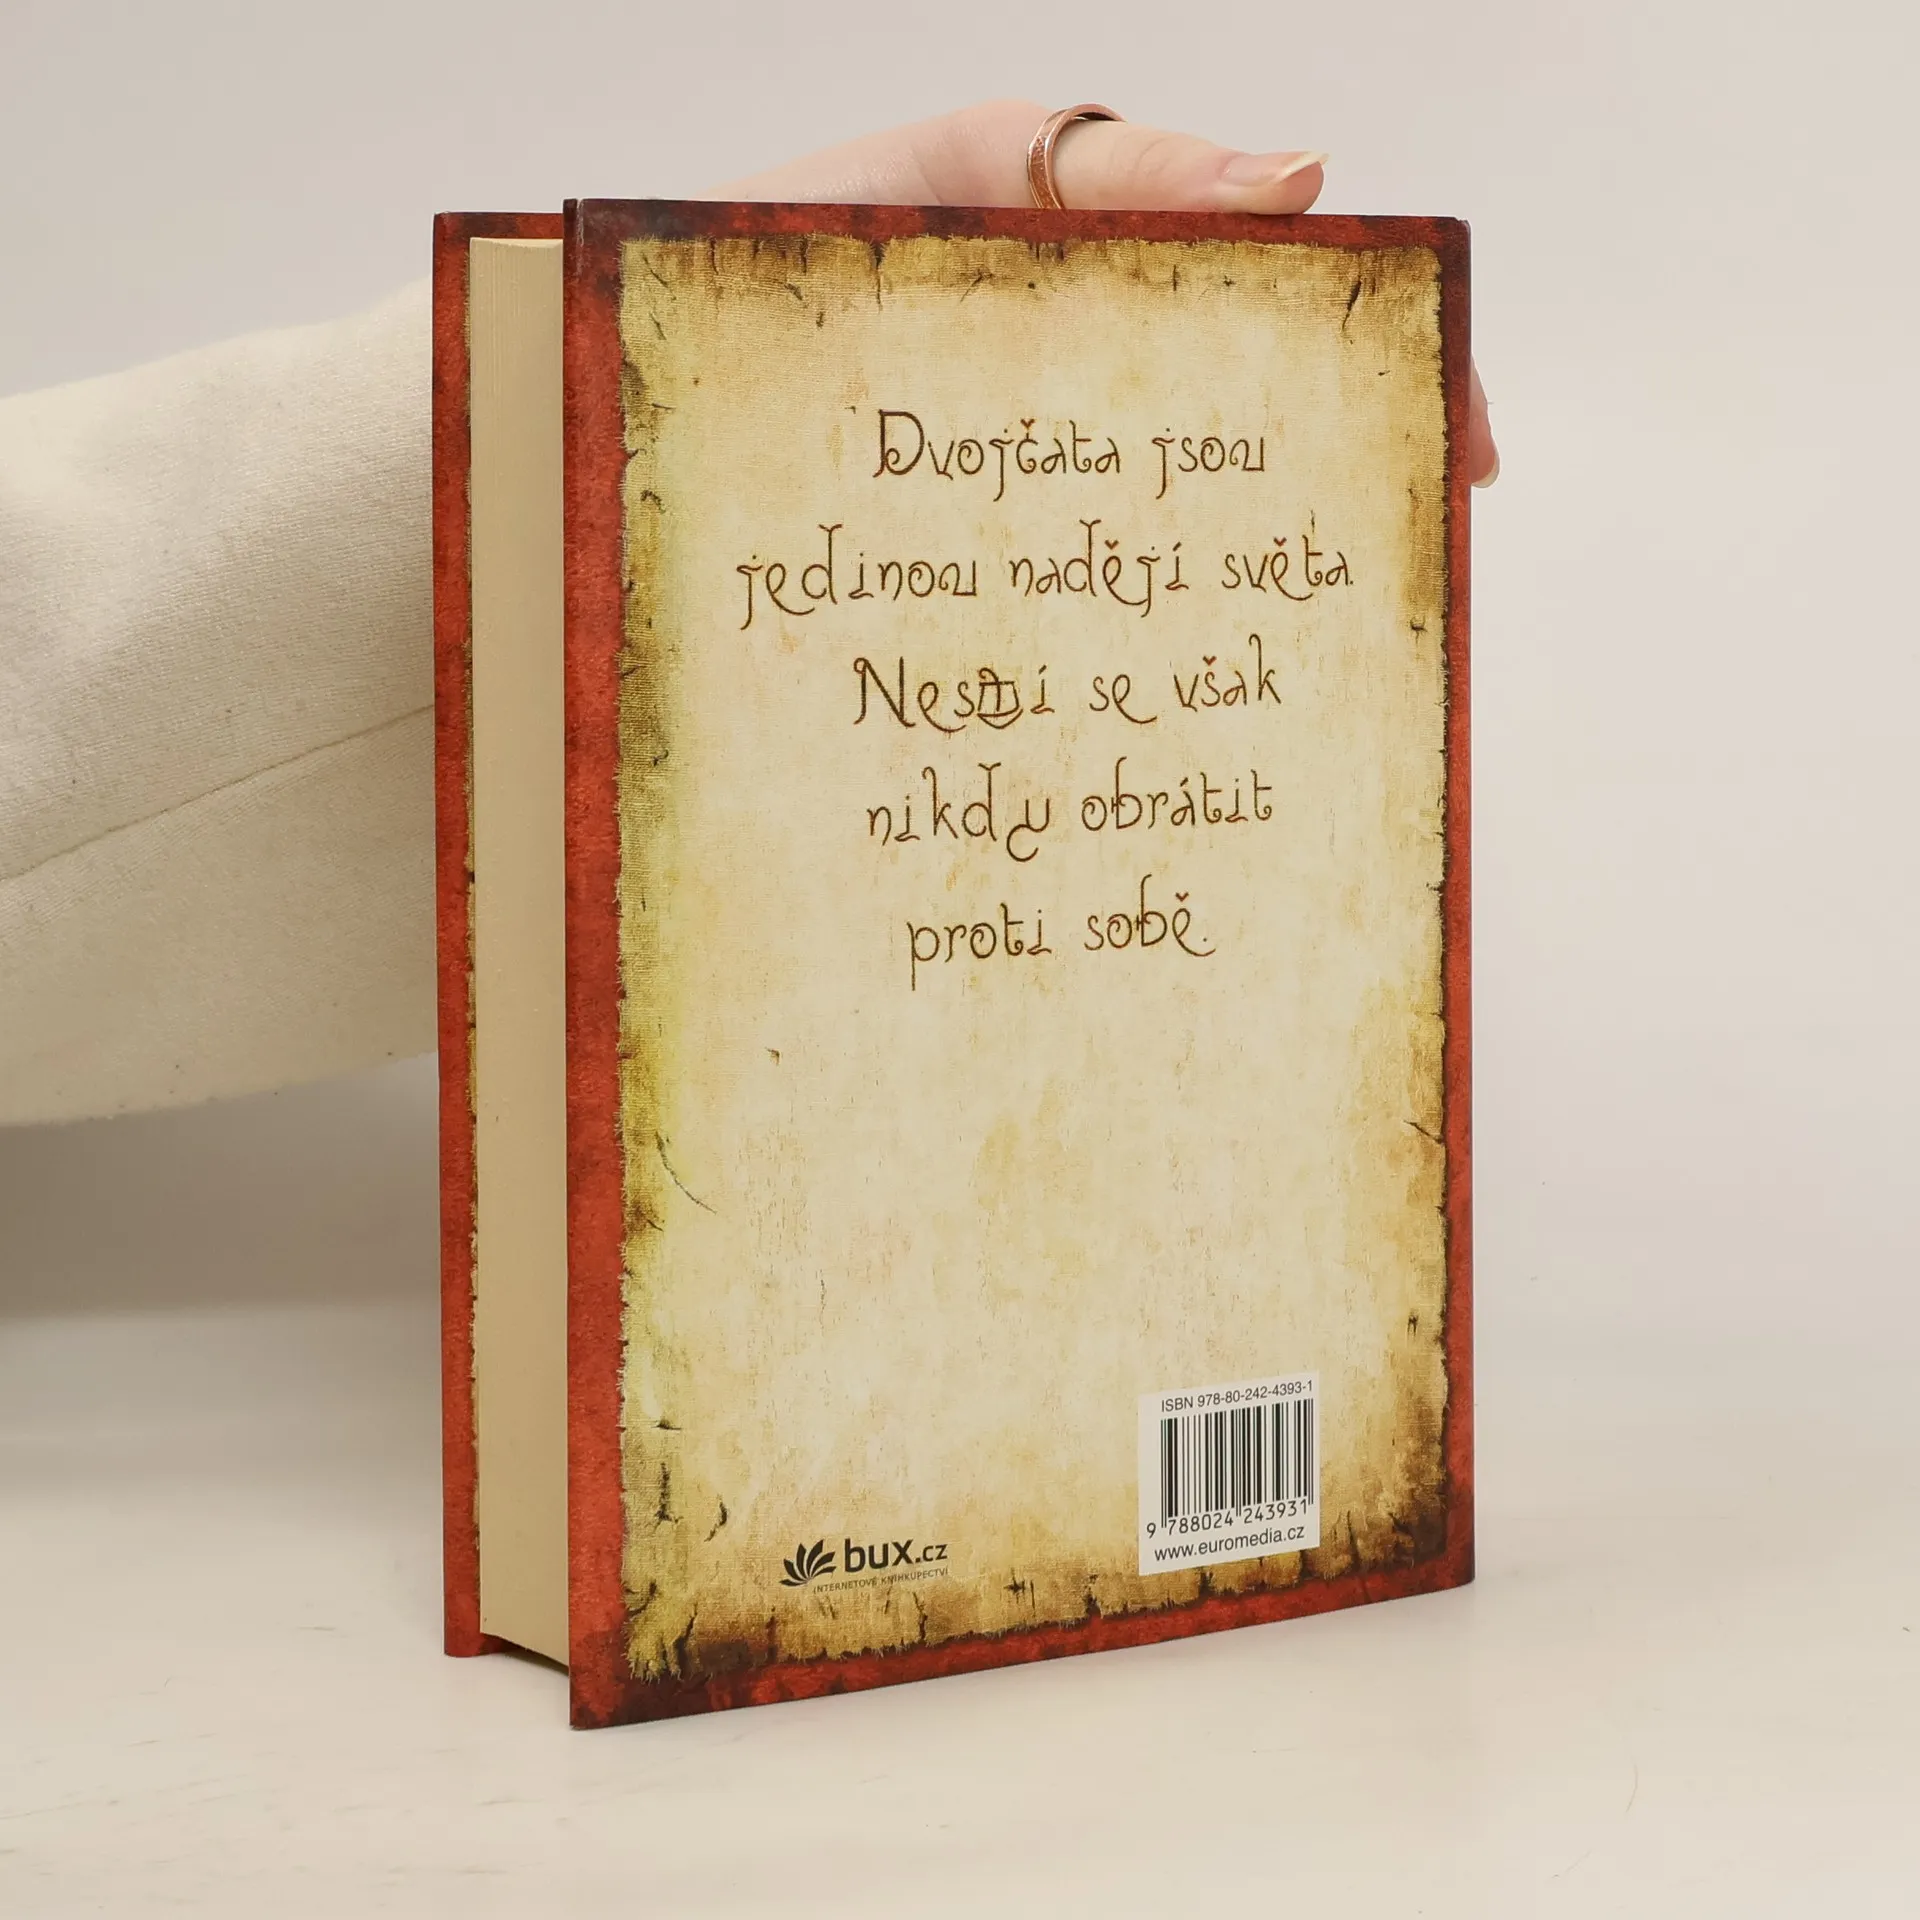 Dvojčata jsou
jedinou nadějí světa.
Nesmí se však
nikdy obrátit
proti sobě.
ISBN 978-80-242-4393-1
9 788024 243931
www.euromedia.cz
bux.cz
INTERNETOVÉ KNIHKUPECTVÍ